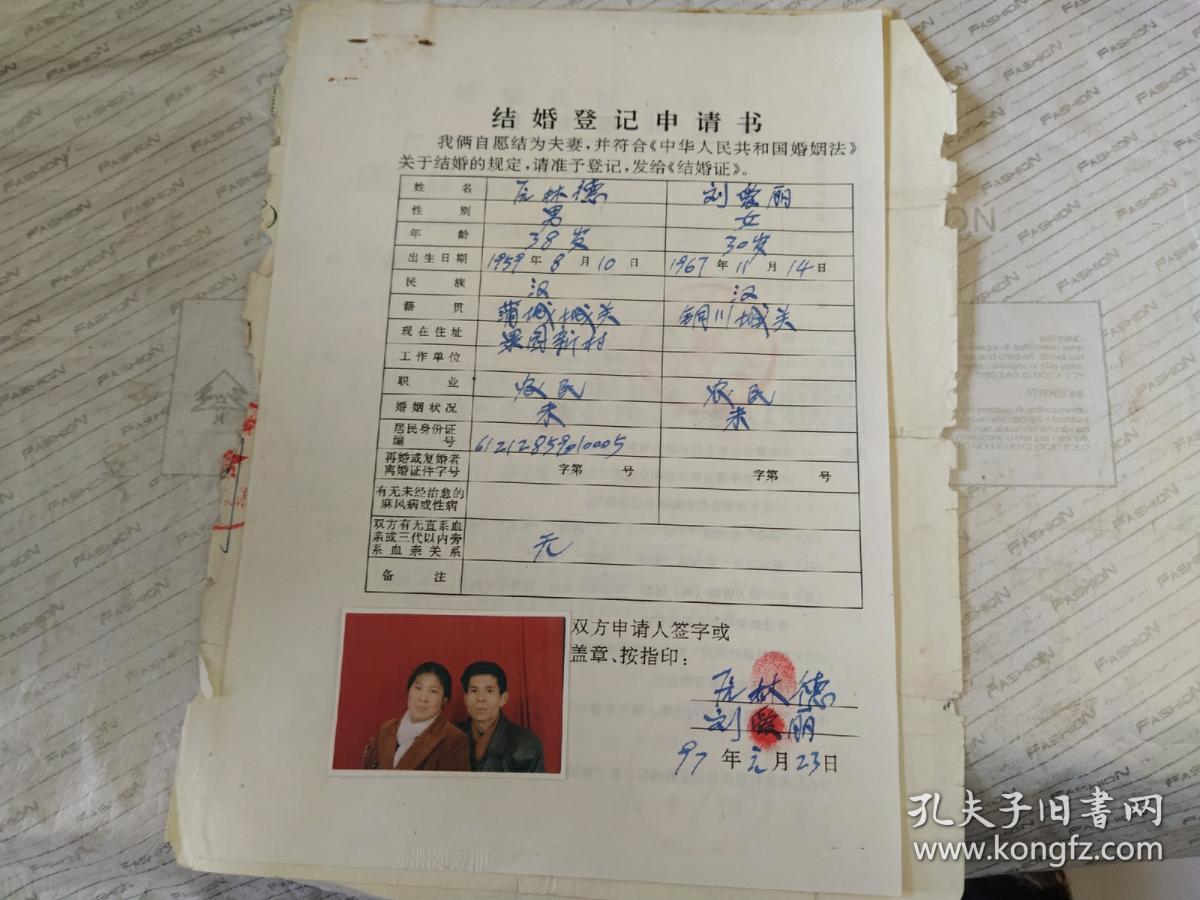 结婚登记申请书
我俩自愿结为夫妻，并符合《中华人民共和国婚姻法》
关于结婚的规定，请准予登记，发给《结婚证》。
姓名 林德 刘爱丽
性别 男 女
年龄 38岁 30岁
出生日期 1959年8月10日 1967年11月14日
民族 汉 汉
籍贯 蒲城城关 铜川城关
现在住址 果园新村
工作单位
职业 农民 农民
婚姻状况 未 未
居民身份证
编号
再婚或复婚者
离婚证件字号 字第 号 字第 号
有无未经治愈的
麻风病或性病
双方有无直系血
亲或三代以内旁
系血亲关系 无
备注
双方申请人签字或
盖章、按指印：
林德
刘爱丽
97年元月23日
FASHION
孔夫子旧书网
www.kongfz.com